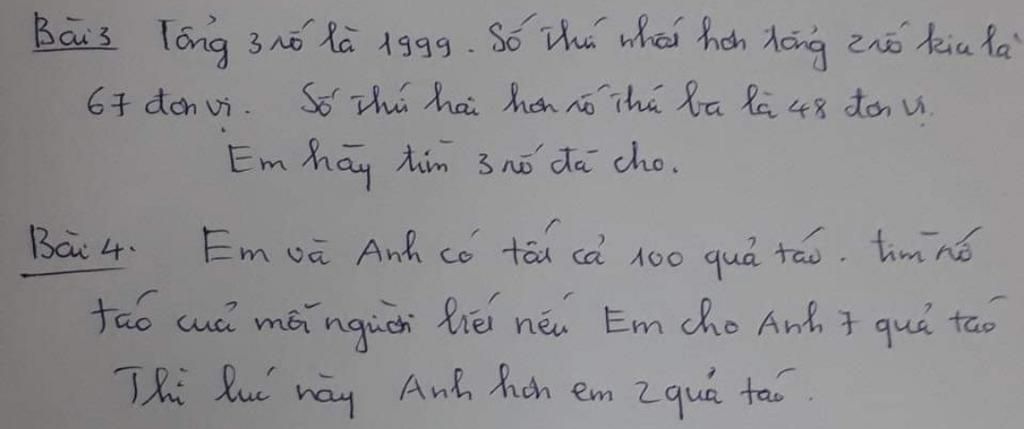 Bài 3 Tổng 3 số là 1999. Số thứ nhất hơn tổng 2 số kia là
67 đơn vị. Số thứ hai hơn số thứ ba là 48 đơn vị.
Em hãy tìm 3 số đã cho.
Bài 4. Em và Anh có tất cả 100 quả táo. tìm số
táo của mỗi người biết nếu Em cho Anh 7 quả táo
Thì lúc này Anh hơn em 2 quả táo.